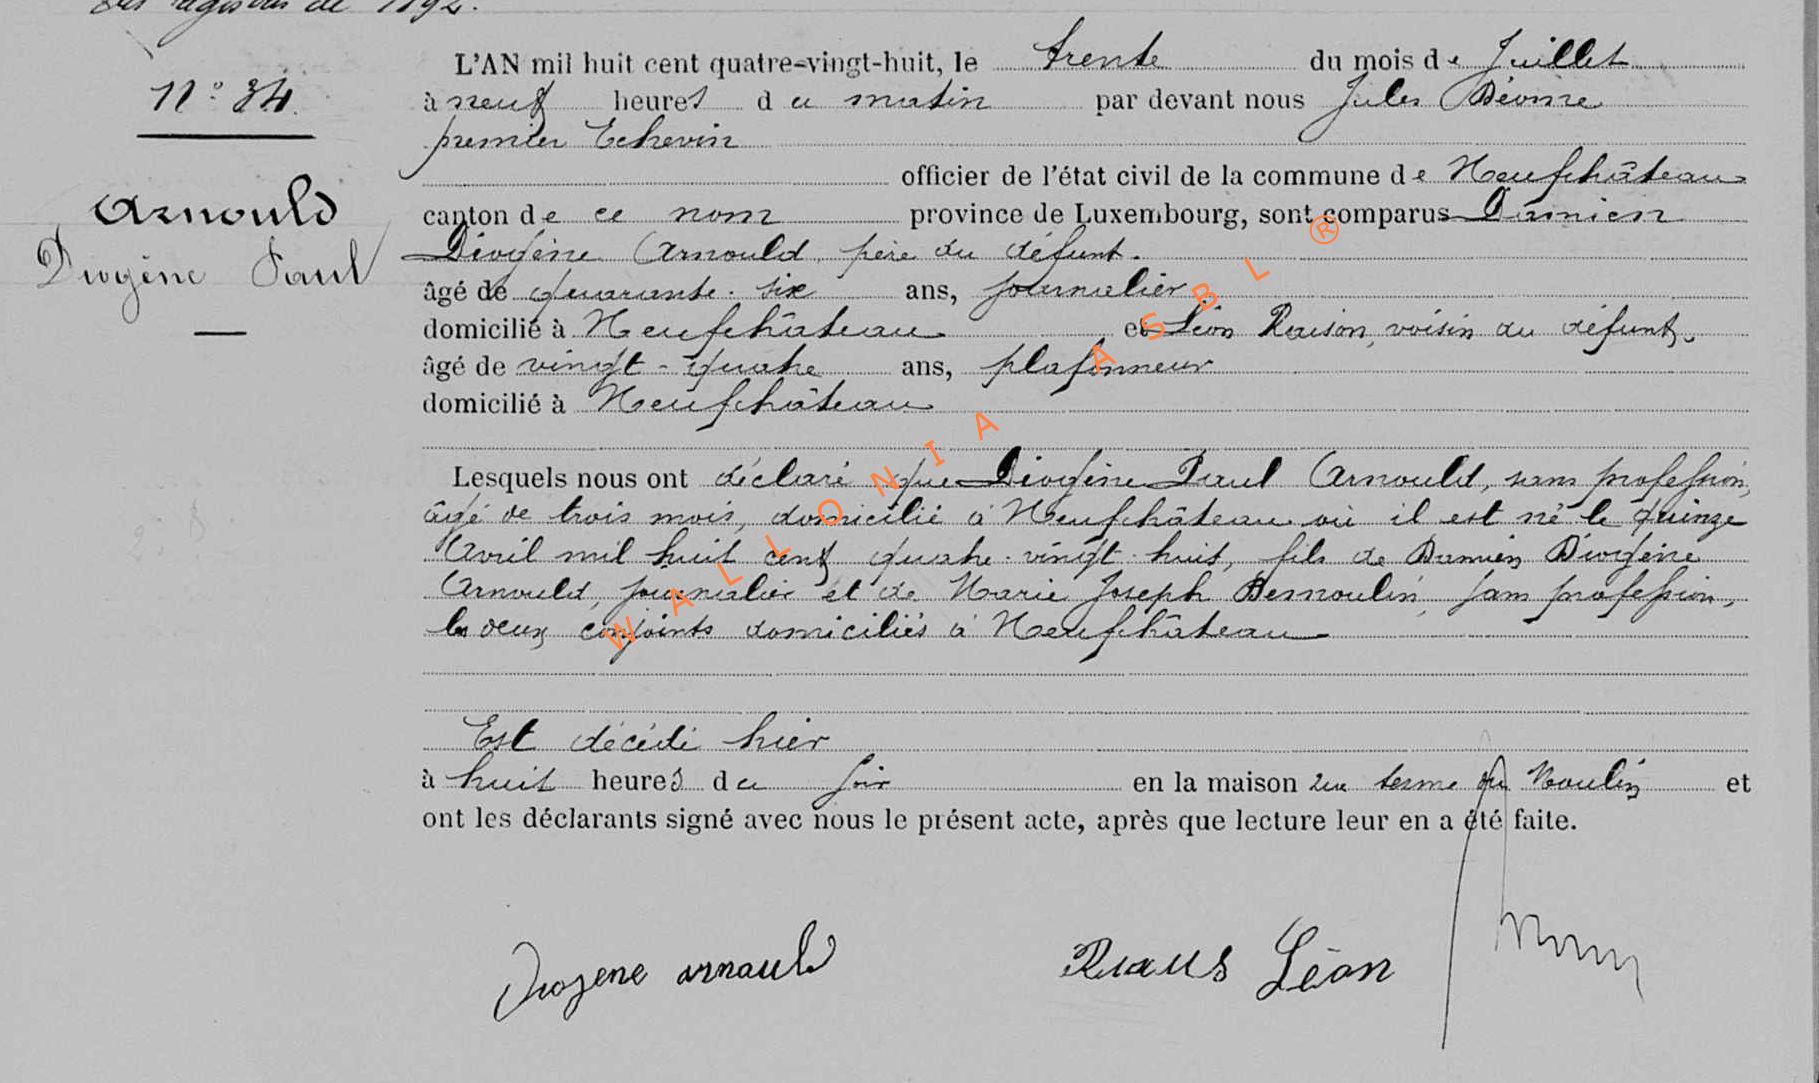 des registres de 1892.
N° 34.
Arnould
Diogène Paul
L'AN mil huit cent quatre-vingt-huit, le trente du mois de Juillet
à neuf heures du matin par devant nous Jules
premier Echevin
officier de l'état civil de la commune de Neufchâteau
canton de ce nom province de Luxembourg, sont comparus Damien
Diogène Arnould, père du défunt.
âgé de quarante-six ans, journalier
domicilié à Neufchâteau et Léon Raison, voisin du défunt,
âgé de vingt-quatre ans, plafonneur
domicilié à Neufchâteau
Lesquels nous ont déclaré que Diogène Paul Arnould, sans profession,
âgé de trois mois, domicilié à Neufchâteau où il est né le quinze
Avril mil huit cent quatre-vingt-huit, fils de Damien Diogène
Arnould, journalier et de Marie Joseph Desmoulin, sans profession,
les deux conjoints domiciliés à Neufchâteau
Est décédé hier
à huit heures du soir en la maison rue terme du Moulin et
ont les déclarants signé avec nous le présent acte, après que lecture leur en a été faite.
Diogene arnould
Léon
WALLONIA ASBL ®